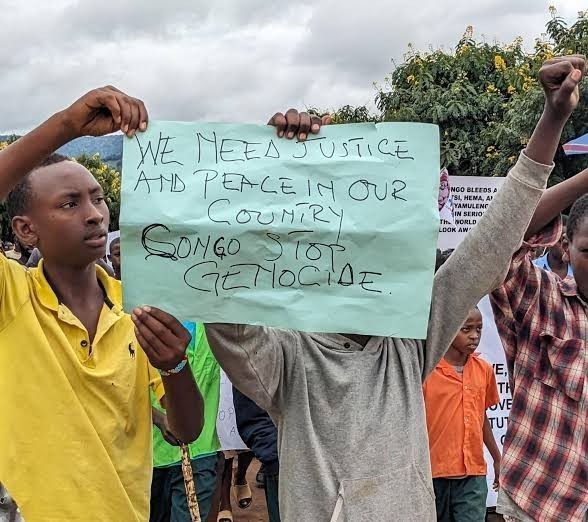 WE NEED JUSTICE
AND PEACE IN OUR
COUNTRY
CONGO STOP
GENOCIDE.
NGO BLEEDS A
TSI, HEMA, A
YAMULENG
IN SERIOU
THE WORLD
LOOK AW